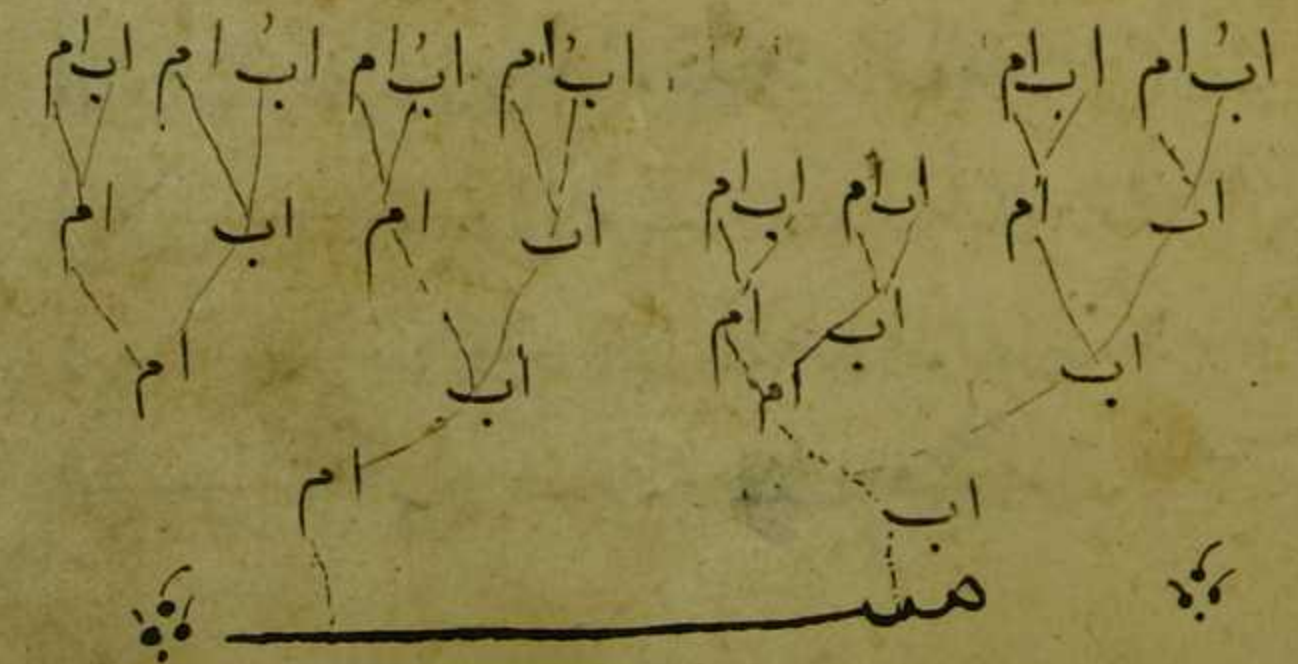 اب ام اب ام اب ام اب ام اب ام اب ام
اب ام اب ام
اب ام اب ام اب ام
اب ام
اب اب ام
ام
ام
اب
هـ